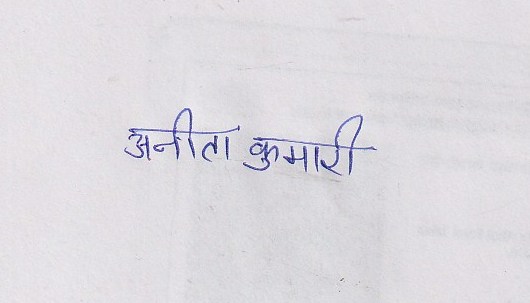 अनीता कुमारी